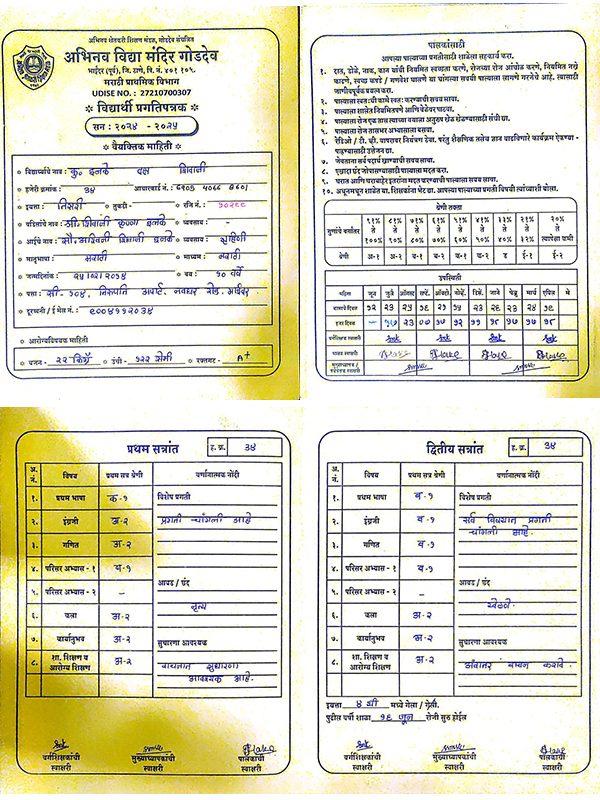 अभिनव शेतकरी शिक्षण मंडळ, गोडदेव संचलित
अभिनव विद्या मंदिर गोडदेव
भाईंदर (पूर्व), जि. ठाणे, पि. नं. ४०१ १०५.
मराठी प्राथमिक विभाग
UDISE NO. : 27210700307
विद्यार्थी प्रगतिपत्रक
सन : २०२४ - २०२५
वैयक्तिक माहिती
विद्यार्थ्याचे नाव : कु. इनके दक्ष शिवाजी
हजेरी क्रमांक : ३४ आधारकार्ड नं. :
इयत्ता : तिसरी तुकडी : - रजि नं. :
वडिलांचे नाव : श्री. शिवाजी कृष्णा इनके व्यवसाय : -
आईचे नाव : सौ. अश्विनी शिवाजी इनके व्यवसाय : गृहिणी
मातृभाषा : मराठी माध्यम : मराठी
जन्मदिनांक : वय : १० वर्षे
पत्ता : सी-१०४, तिरुपती अपार्ट. नवघर रोड, भाईंदर
दूरध्वनी / ई मेल नं. : ८००४११२०३४
आरोग्यविषयक माहिती
वजन - २२ किग्रॅ उंची - १२२ सेमी रक्तगट - A+
पालकांसाठी
आपल्या पाल्याच्या प्रगतीसाठी शाळेला सहकार्य करा.
१. दात, डोळे, नाक, कान यांची नियमित स्वच्छता करणे, रोजच्या रोज आंघोळ करणे, नियमित नखे कापणे, स्वच्छ कपडे / गणवेश घालणे या चांगल्या सवयी पाल्याला लावणे गरजेचे आहे. त्यासाठी जाणीवपूर्वक प्रयत्न करा.
२. पाल्याला स्वतःची कामे स्वतः करण्याची सवय लावा.
३. पाल्याला शाळेत नियमितपणे आणि वेळेवर पाठवा.
४. पाल्याला रोज एक तास त्याच्या वयाला अनुरूप खेळ खेळण्यासाठी संधी द्या.
५. पाल्याला रोज तासभर अभ्यासाला बसवा.
६. रेडिओ / टी. व्ही. वापरावर नियंत्रण ठेवा. परंतु शैक्षणिक तसेच ज्ञान वाढविणारे कार्यक्रम ऐकण्या - पाहण्यासाठी उत्तेजन द्या.
७. जेवताना सर्व पदार्थ खाण्याची सवय लावा.
८. एखादा छंद जोपासण्यासाठी पाल्याला मदत करा.
९. घरात आणि घराबाहेर इतरांना मदत करण्याची पाल्याला सवय लावा.
१०. अधूनमधून शाळेत या. शिक्षकांना भेट द्या. आपल्या पाल्याच्या प्रगती विषयी त्यांच्याशी बोला.
श्रेणी तक्ता
गुणांचे वर्गांतर ९१% ते १००% ८१% ते ९०% ७१% ते ८०% ६१% ते ७०% ५१% ते ६०% ४१% ते ५०% ३३% ते ४०% २१% ते ३२% २०% व त्यापेक्षा कमी
श्रेणी अ-१ अ-२ ब-१ ब-२ क-१ क-२ ड ई-१ ई-२
उपस्थिती
महिना जून जुलै ऑगस्ट सप्टें. ऑक्टो. नोव्हें. डिसें. जाने फेब्रु मार्च एप्रिल मे
कामाचे दिवस १२ २३ २५ १८ २१ १५ २३ २३ २४
हजर दिवस
वर्गशिक्षक स्वाक्षरी
पालक स्वाक्षरी
मुख्याध्यापक / पर्यवेक्षक स्वाक्षरी
प्रथम सत्रांत ह. क्र. ३४
अ. नं. विषय प्रथम सत्र श्रेणी वर्णनात्मक नोंदी
१. प्रथम भाषा क-१ विशेष प्रगती
२. इंग्रजी अ-२ प्रगती चांगली आहे
३. गणित अ-२
४. परिसर अभ्यास - १ ब-१
आवड / छंद
५. परिसर अभ्यास - २ -
नृत्य
६. कला अ-२
७. कार्यानुभव अ-२ सुधारणा आवश्यक
८. शा. शिक्षण व आरोग्य शिक्षण अ-२ वाचनात सुधारणा
आवश्यक आहे.
वर्गशिक्षकांची स्वाक्षरी मुख्याध्यापकांची स्वाक्षरी पालकांची स्वाक्षरी
द्वितीय सत्रांत ह. क्र. ३४
अ. नं. विषय प्रथम सत्र श्रेणी वर्णनात्मक नोंदी
१. प्रथम भाषा ब-१ विशेष प्रगती
२. इंग्रजी ब-१ सर्व विषयात प्रगती
चांगली आहे.
३. गणित ब-१
४. परिसर अभ्यास - १ ब-१
आवड / छंद
५. परिसर अभ्यास - २ -
खेळणे.
६. कला अ-२
७. कार्यानुभव अ-२ सुधारणा आवश्यक
८. शा. शिक्षण व आरोग्य शिक्षण अ-२ अवांतर वाचन करावे.
इयत्ता ४ थी मध्ये गेला / गेली.
पुढील वर्षी शाळा १६ जून रोजी सुरु होईल
वर्गशिक्षकांची स्वाक्षरी मुख्याध्यापकांची स्वाक्षरी पालकांची स्वाक्षरी